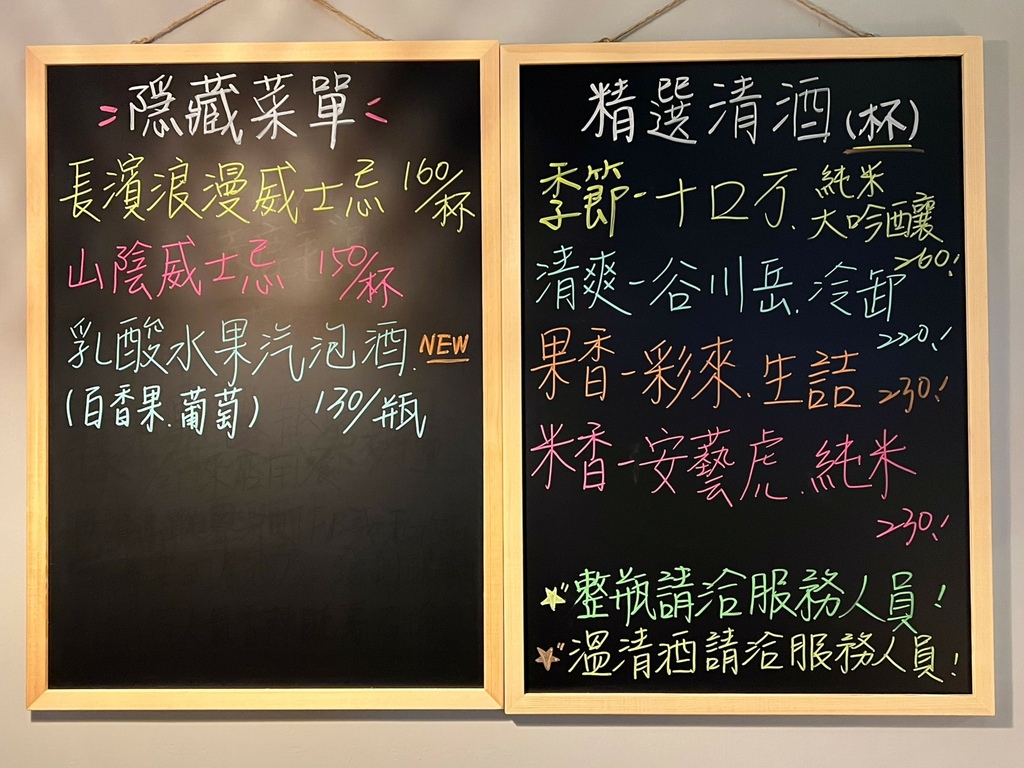 隱藏菜單
長濱浪漫威士忌 160/杯
山陰威士忌 150/杯
乳酸水果汽泡酒. NEW
(百香果.葡萄) 130/瓶
精選清酒(杯)
季節-十口万. 純米
大吟釀
260!
清爽-谷川岳.冷卸
220!
果香-彩來.生詰 230!
米香-安藝虎.純米
230!
整瓶請洽服務人員!
溫清酒請洽服務人員!